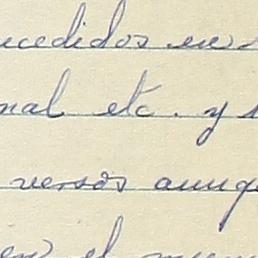 ucedidos en
nal etc. y
versos aunq
en el